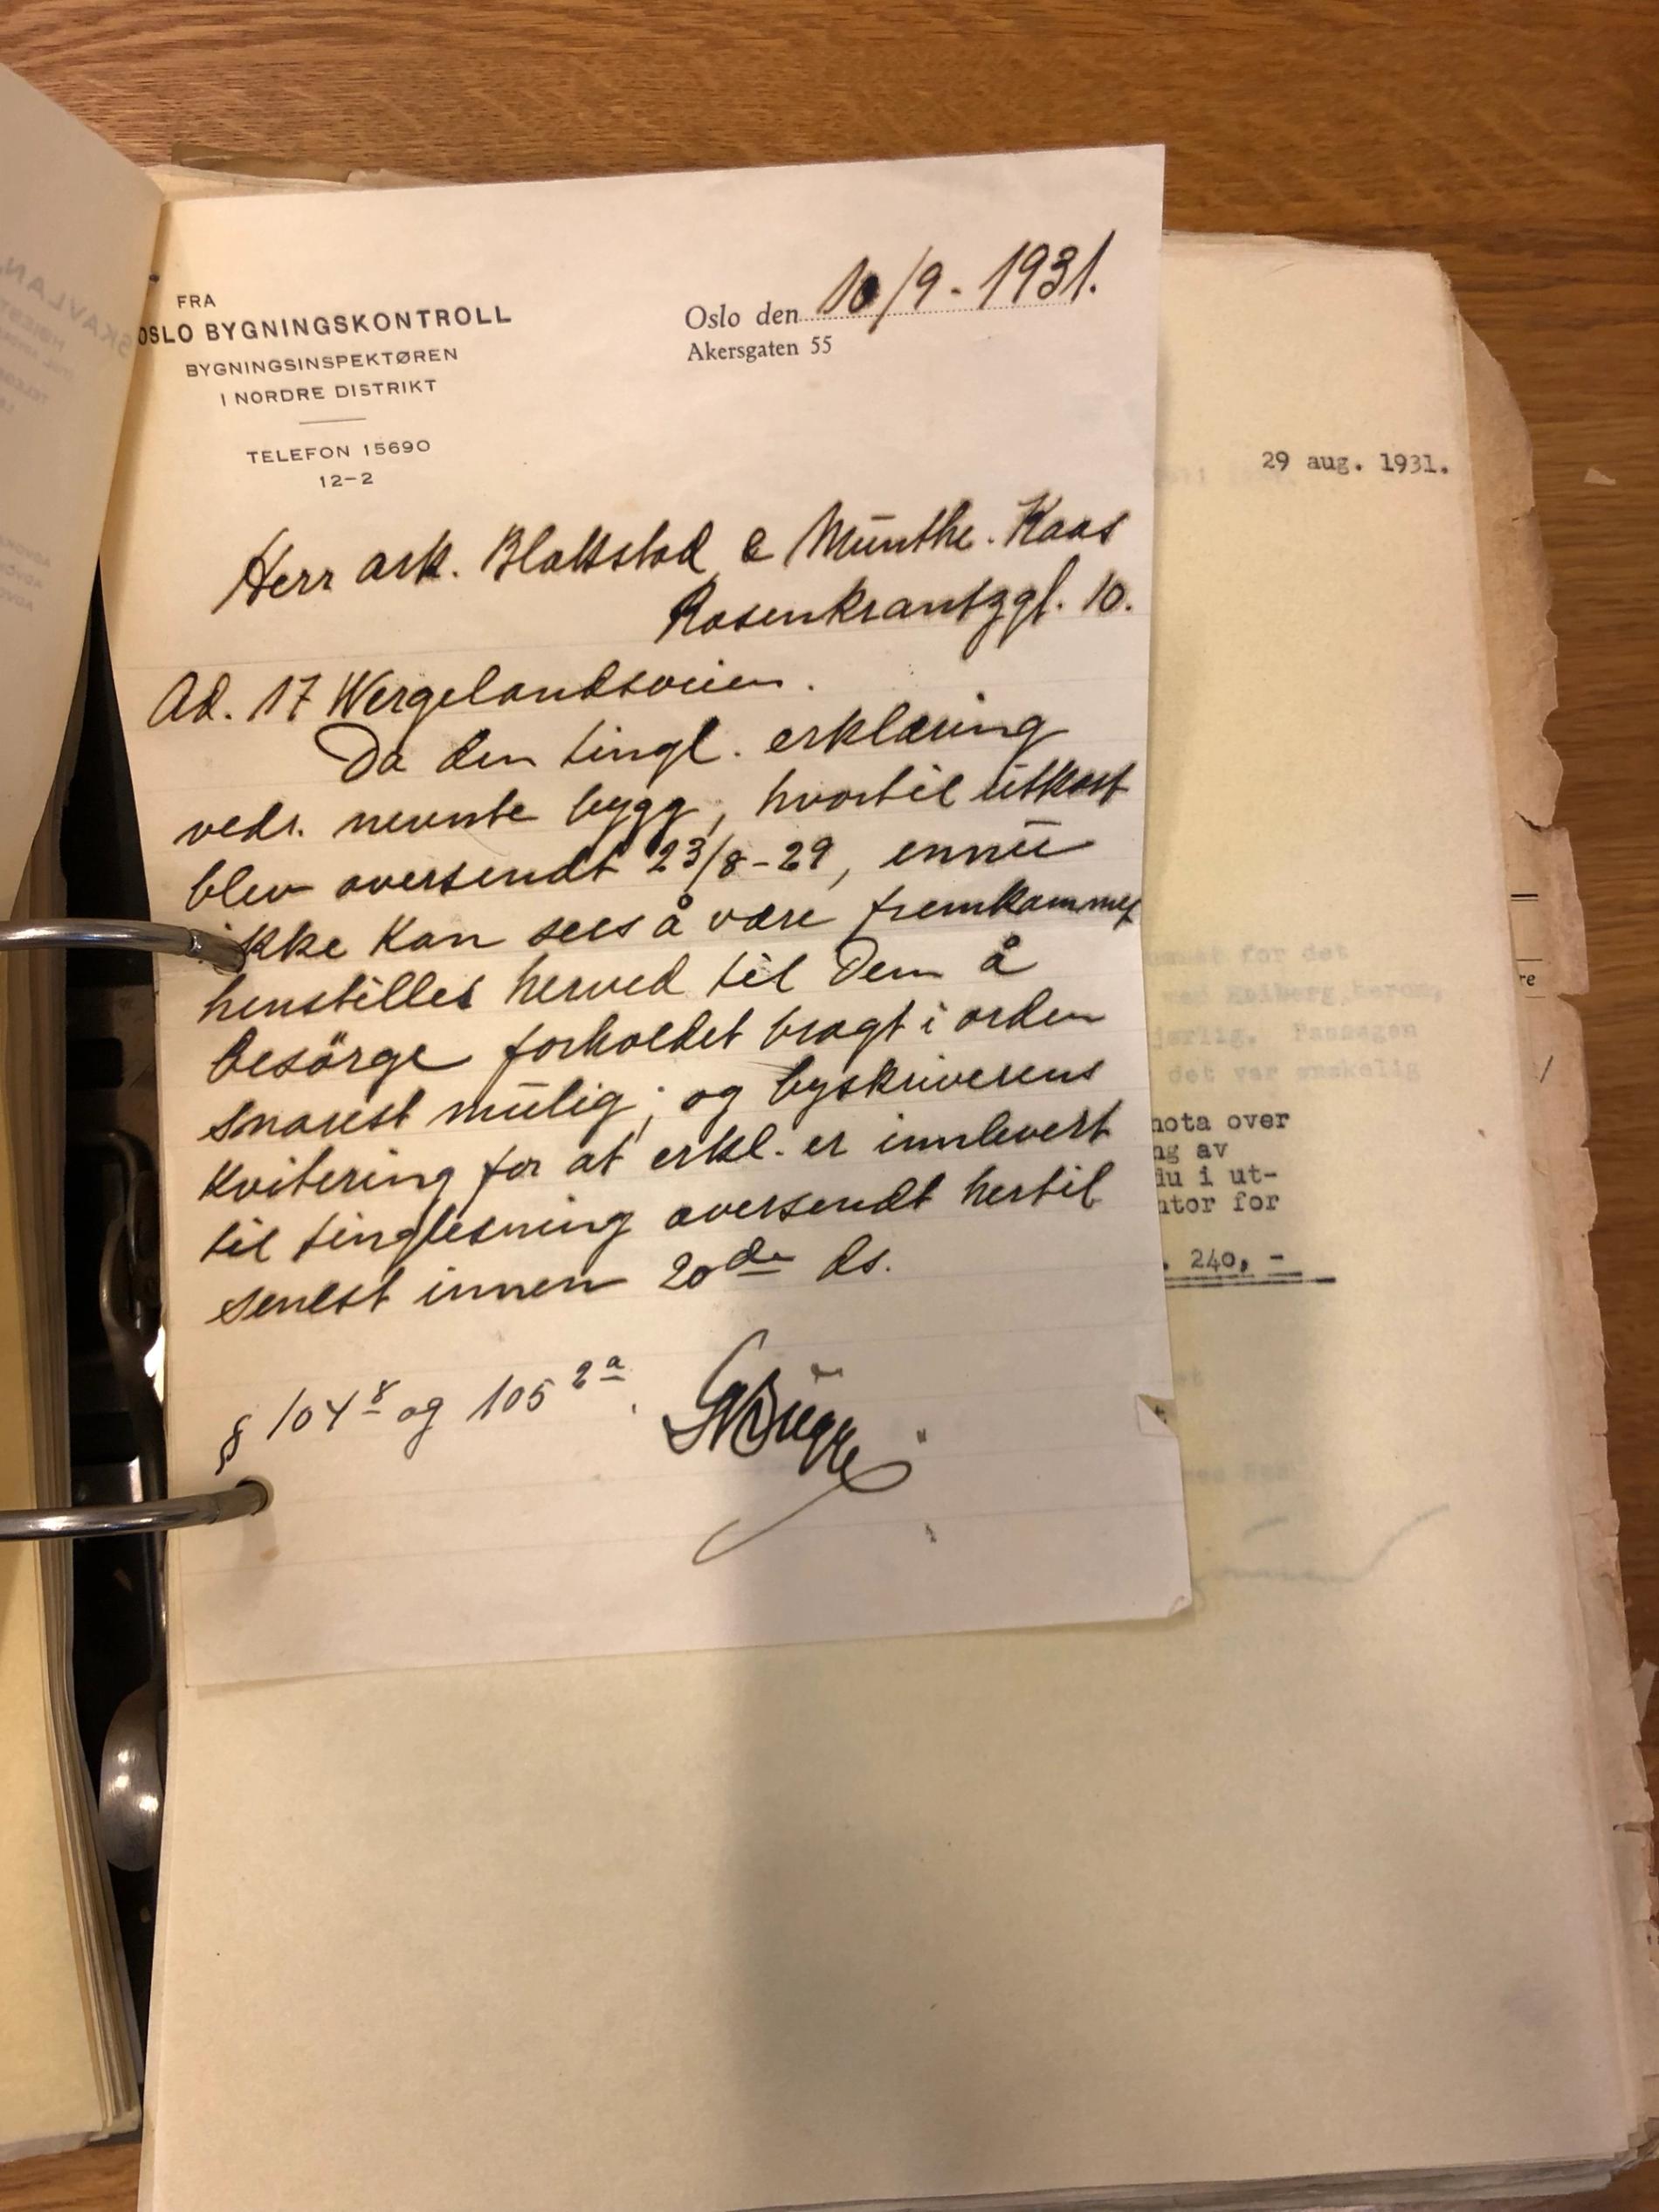 FRA
OSLO BYGNINGSKONTROLL
BYGNINGSINSPEKTØREN
I NORDRE DISTRIKT
TELEFON 15690
12-2
Oslo den 10/9 - 1931.
Akersgaten 55
Herr ark. Blakstad & Munthe-Kaas
Rosenkrantzgt. 10.
Ad. 17 Wergelandsveien.
Da den tingl. erklæring
vedr. nevnte bygg, hvortil utkast
blev oversendt 23/8-29, ennu
ikke kan sees å være fremkommet
henstilles herved til Dem å
besörge forholdet bragt i orden
snarest mulig; og byskriverens
kvitering for at erkl. er innlevert
til tinglesning oversendt hertil
senest innen 20de ds.
§ 104 8 og 105 2a.
29 aug. 1931.
for det
det var ønskelig
nota over
ng av
du i ut-
ntor for
. 240, -
re